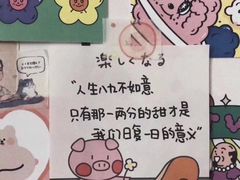 楽しくなる
“人生八九不如意
只有那一两分的甜才是
我们日复一日的意义”